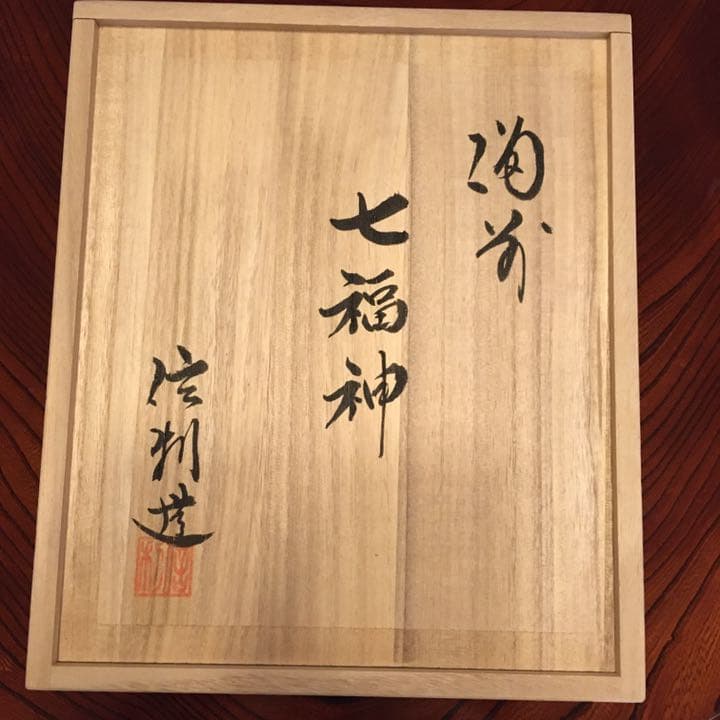 備前
七福神
信利造